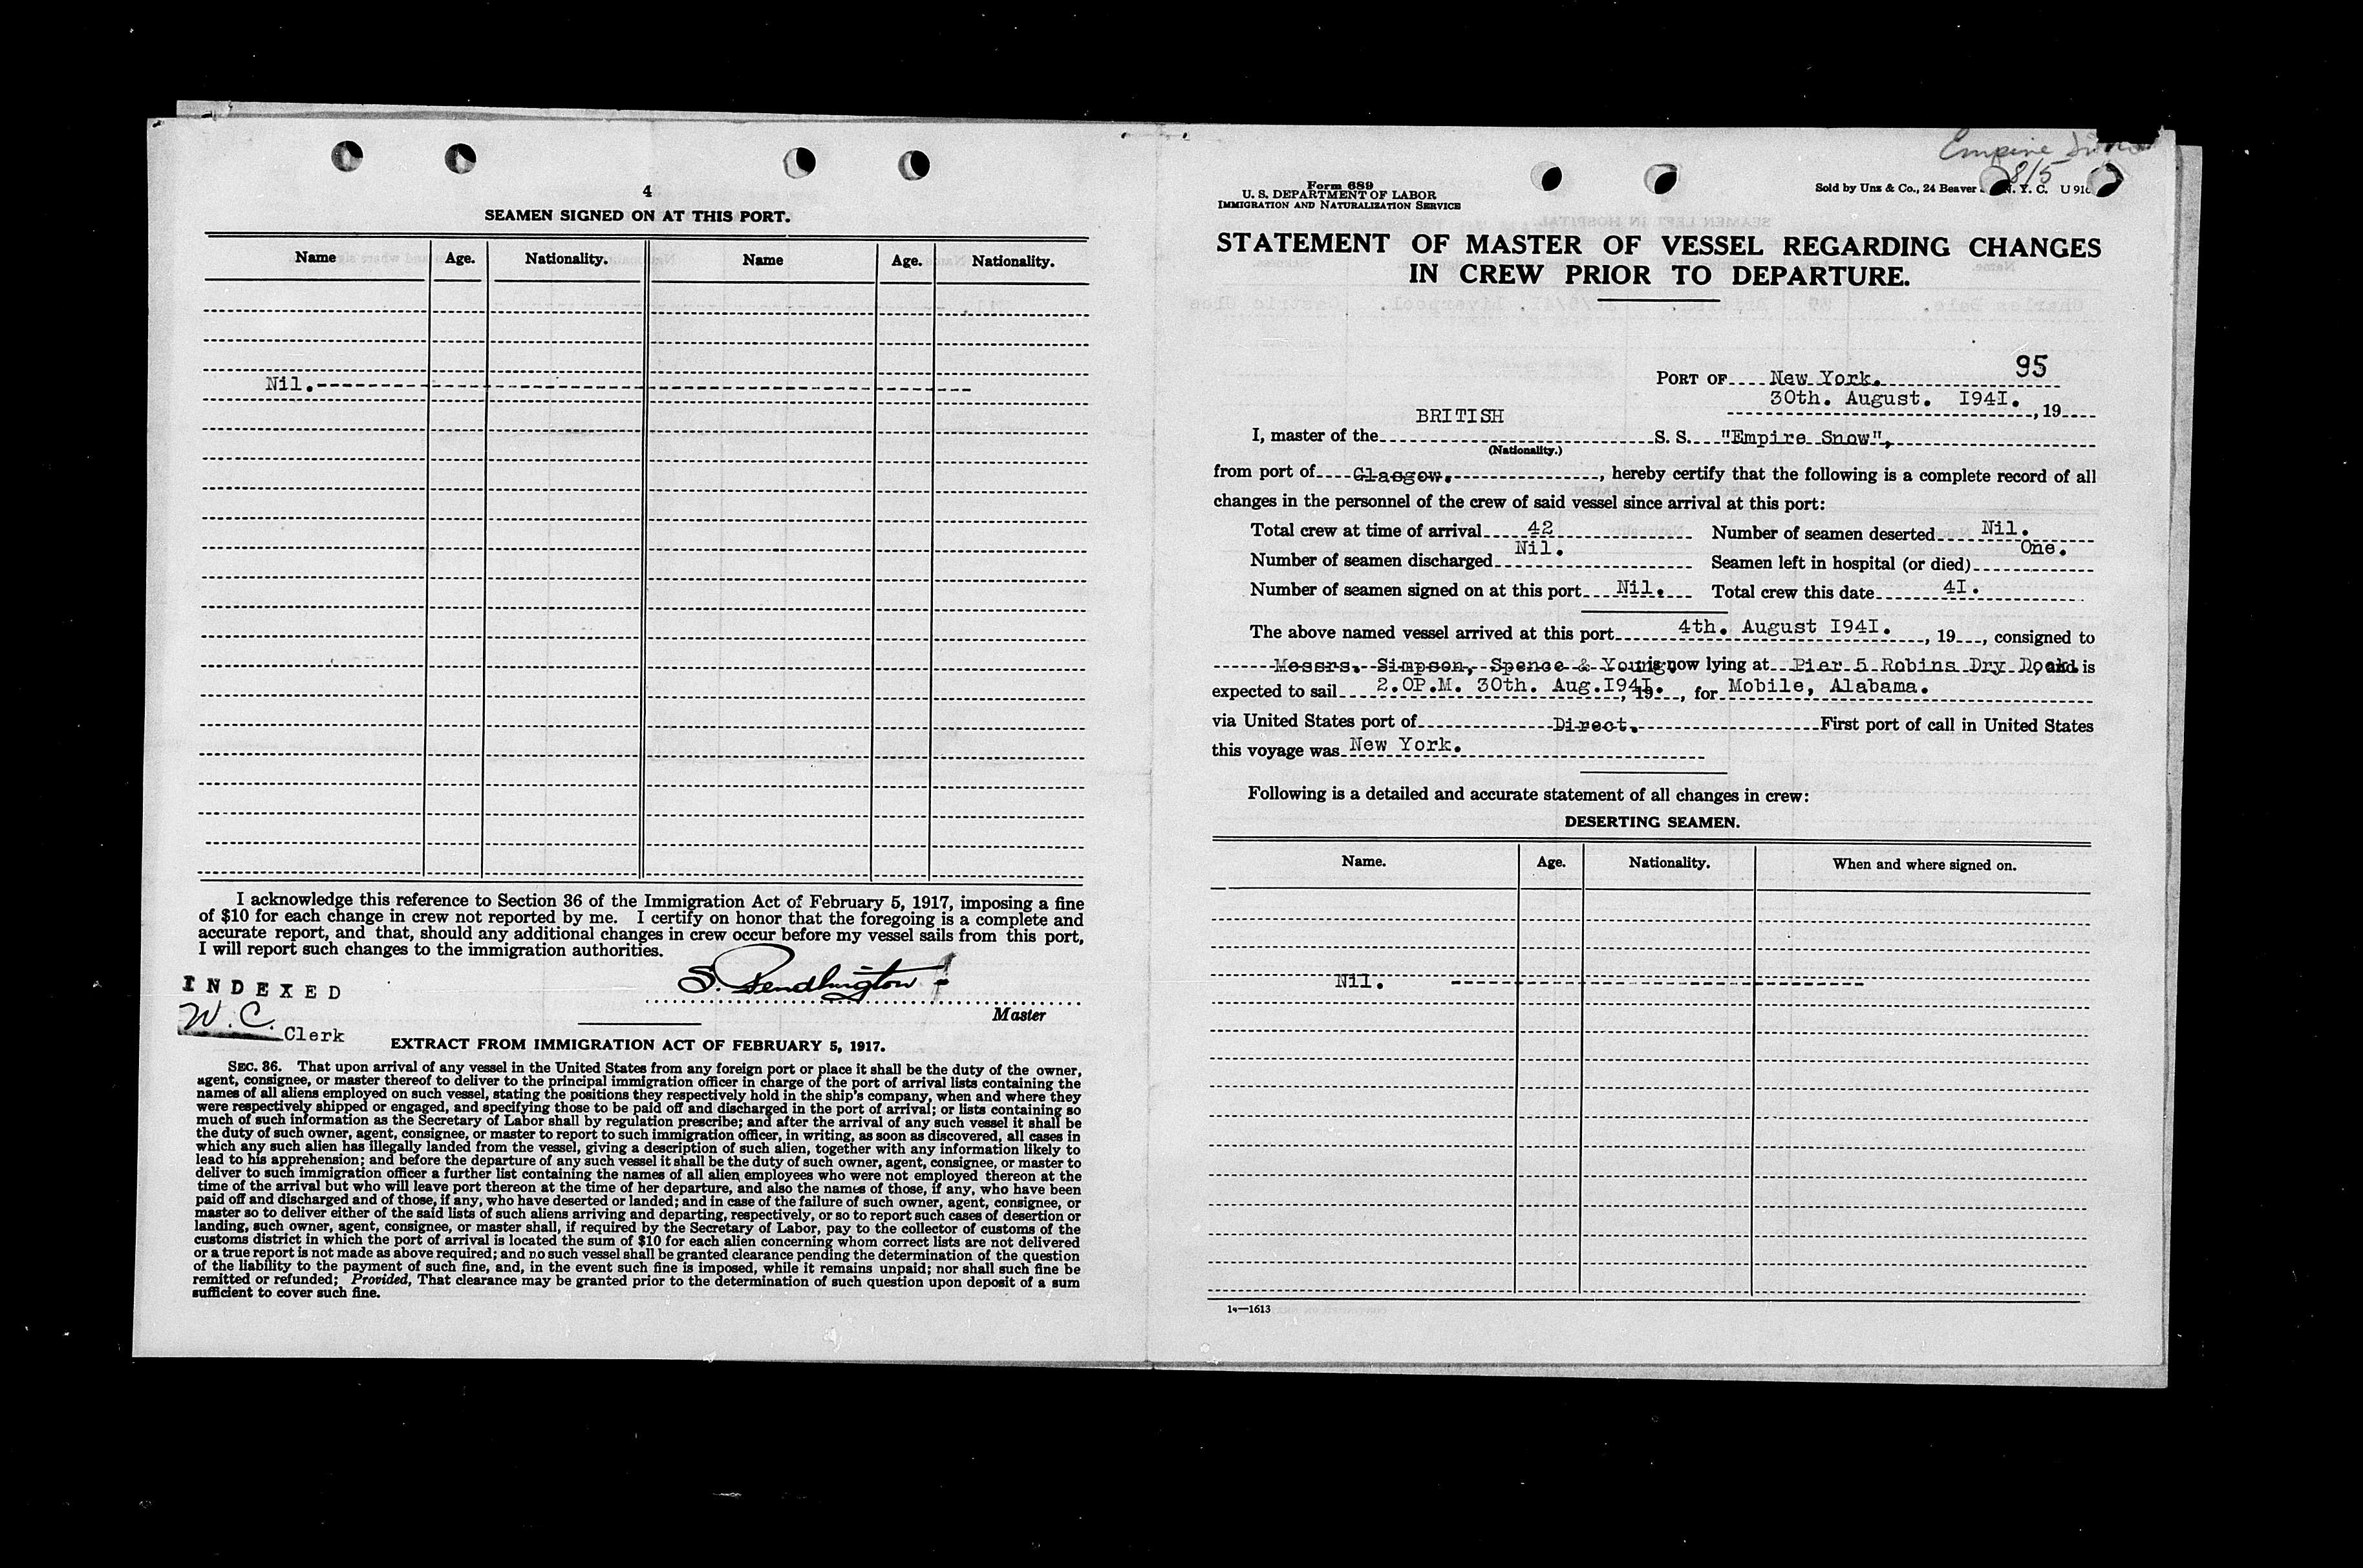 4
SEAMEN SIGNED ON AT THIS PORT.
Name Age. Nationality. Name Age. Nationality.
Nil.
I acknowledge this reference to Section 36 of the Immigration Act of February 5, 1917, imposing a fine
of $10 for each change in crew not reported by me. I certify on honor that the foregoing is a complete and
accurate report, and that, should any additional changes in crew occur before my vessel sails from this port,
I will report such changes to the immigration authorities.
S. Pendlington
Master
INDEXED
W. C. Clerk
EXTRACT FROM IMMIGRATION ACT OF FEBRUARY 5, 1917.
SEC. 36. That upon arrival of any vessel in the United States from any foreign port or place it shall be the duty of the owner,
agent, consignee, or master thereof to deliver to the principal immigration officer in charge of the port of arrival lists containing the
names of all aliens employed on such vessel, stating the positions they respectively hold in the ship's company, when and where they
were respectively shipped or engaged, and specifying those to be paid off and discharged in the port of arrival; or lists containing so
much of such information as the Secretary of Labor shall by regulation prescribe; and after the arrival of any such vessel it shall be
the duty of such owner, agent, consignee, or master to report to such immigration officer, in writing, as soon as discovered, all cases in
which any such alien has illegally landed from the vessel, giving a description of such alien, together with any information likely to
lead to his apprehension; and before the departure of any such vessel it shall be the duty of such owner, agent, consignee, or master to
deliver to such immigration officer a further list containing the names of all alien employees who were not employed thereon at the
time of the arrival but who will leave port thereon at the time of her departure, and also the names of those, if any, who have been
paid off and discharged and of those, if any, who have deserted or landed; and in case of the failure of such owner, agent, consignee, or
master so to deliver either of the said lists of such aliens arriving and departing, respectively, or so to report such cases of desertion or
landing, such owner, agent, consignee, or master shall, if required by the Secretary of Labor, pay to the collector of customs of the
customs district in which the port of arrival is located the sum of $10 for each alien concerning whom correct lists are not delivered
or a true report is not made as above required; and no such vessel shall be granted clearance pending the determination of the question
of the liability to the payment of such fine, and, in the event such fine is imposed, while it remains unpaid; nor shall such fine be
remitted or refunded; Provided, That clearance may be granted prior to the determination of such question upon deposit of a sum
sufficient to cover such fine.
Empire
8/5
Form 689
U. S. DEPARTMENT OF LABOR
IMMIGRATION AND NATURALIZATION SERVICE
Sold by Unz & Co., 24 Beaver N. Y. C.
STATEMENT OF MASTER OF VESSEL REGARDING CHANGES
IN CREW PRIOR TO DEPARTURE.
95
PORT OF New York.
30th. August. I94I. , 19
BRITISH
I, master of the S. S. "Empire Snow",
(Nationality.)
from port of Glasgow. , hereby certify that the following is a complete record of all
changes in the personnel of the crew of said vessel since arrival at this port:
Total crew at time of arrival 42 Number of seamen deserted Nil.
Number of seamen discharged Nil. Seamen left in hospital (or died) One.
Number of seamen signed on at this port Nil. Total crew this date 4I.
The above named vessel arrived at this port 4th. August I94I. , 19 , consigned to
Messrs. Simpson, Spence & Young, is now lying at Pier 5 Robins Dry Dock, and is
expected to sail 2.0P.M. 30th. Aug.I94I. , 19 , for Mobile, Alabama.
via United States port of Direct. First port of call in United States
this voyage was New York.
Following is a detailed and accurate statement of all changes in crew:
DESERTING SEAMEN.
Name. Age. Nationality. When and where signed on.
Nil.
14—1613